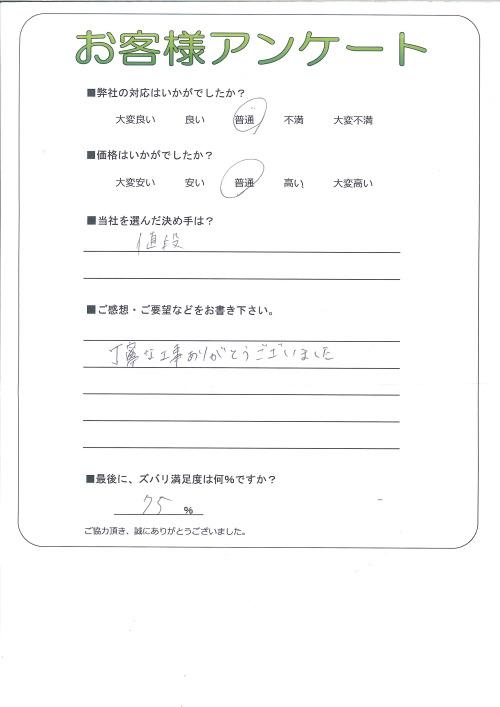 お客様アンケート
■弊社の対応はいかがでしたか？
大変良い 良い 普通 不満 大変不満
■価格はいかがでしたか？
大変安い 安い 普通 高い 大変高い
■当社を選んだ決め手は？
値段
■ご感想・ご要望などをお書き下さい。
丁寧な工事ありがとうございました
■最後に、ズバリ満足度は何%ですか？
75 %
ご協力頂き、誠にありがとうございました。